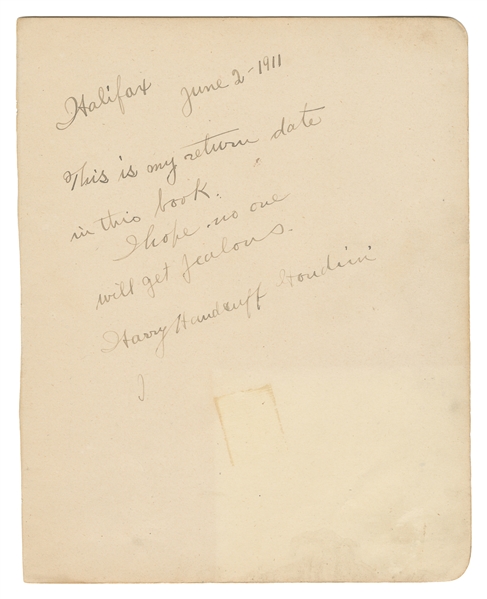 Halifax June 2-1911
This is my return date
in this book.
I hope no one
will get jealous.
Harry Handcuff Houdini